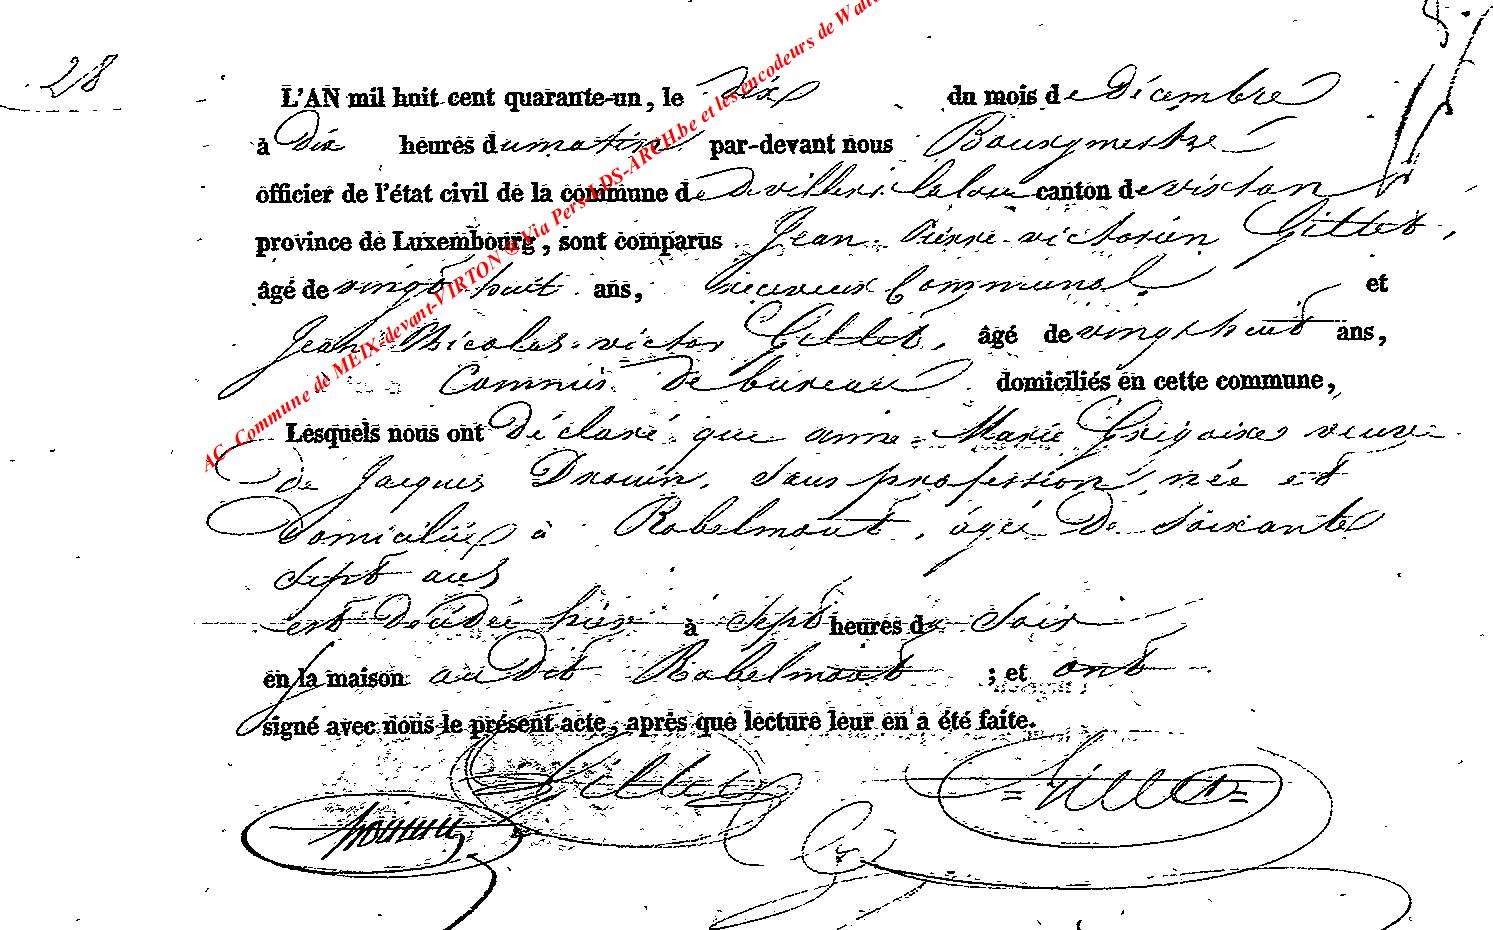 28
L'AN mil huit cent quarante-un, le dix du mois de décembre
à Dix heures du matin par-devant nous Bourgmestre
officier de l'état civil de la commune de Villers la loue canton de virton
province de Luxembourg, sont comparus Jean Pierre victorien Gillet,
âgé de vingt huit ans, receveur Communal et
Jean Nicolas victor Gillet, âgé de vingt huit ans,
Commis de bureau domiciliés en cette commune,
Lesquels nous ont Déclaré que anne Marie Grégoire veuve
de Jacques Drouin, sans profession, née et
Domiciliée à Robelmont, âgée De soixante
sept ans
est Décédée hier à sept heures du soir
en la maison au Dit Robelmont ; et ont
signé avec nous le présent acte, après que lecture leur en a été faite.
Gillet Gillet
AC. Commune de MEIX-devant-VIRTON @ Via Pers LDS-ARCH.be et les encodeurs de